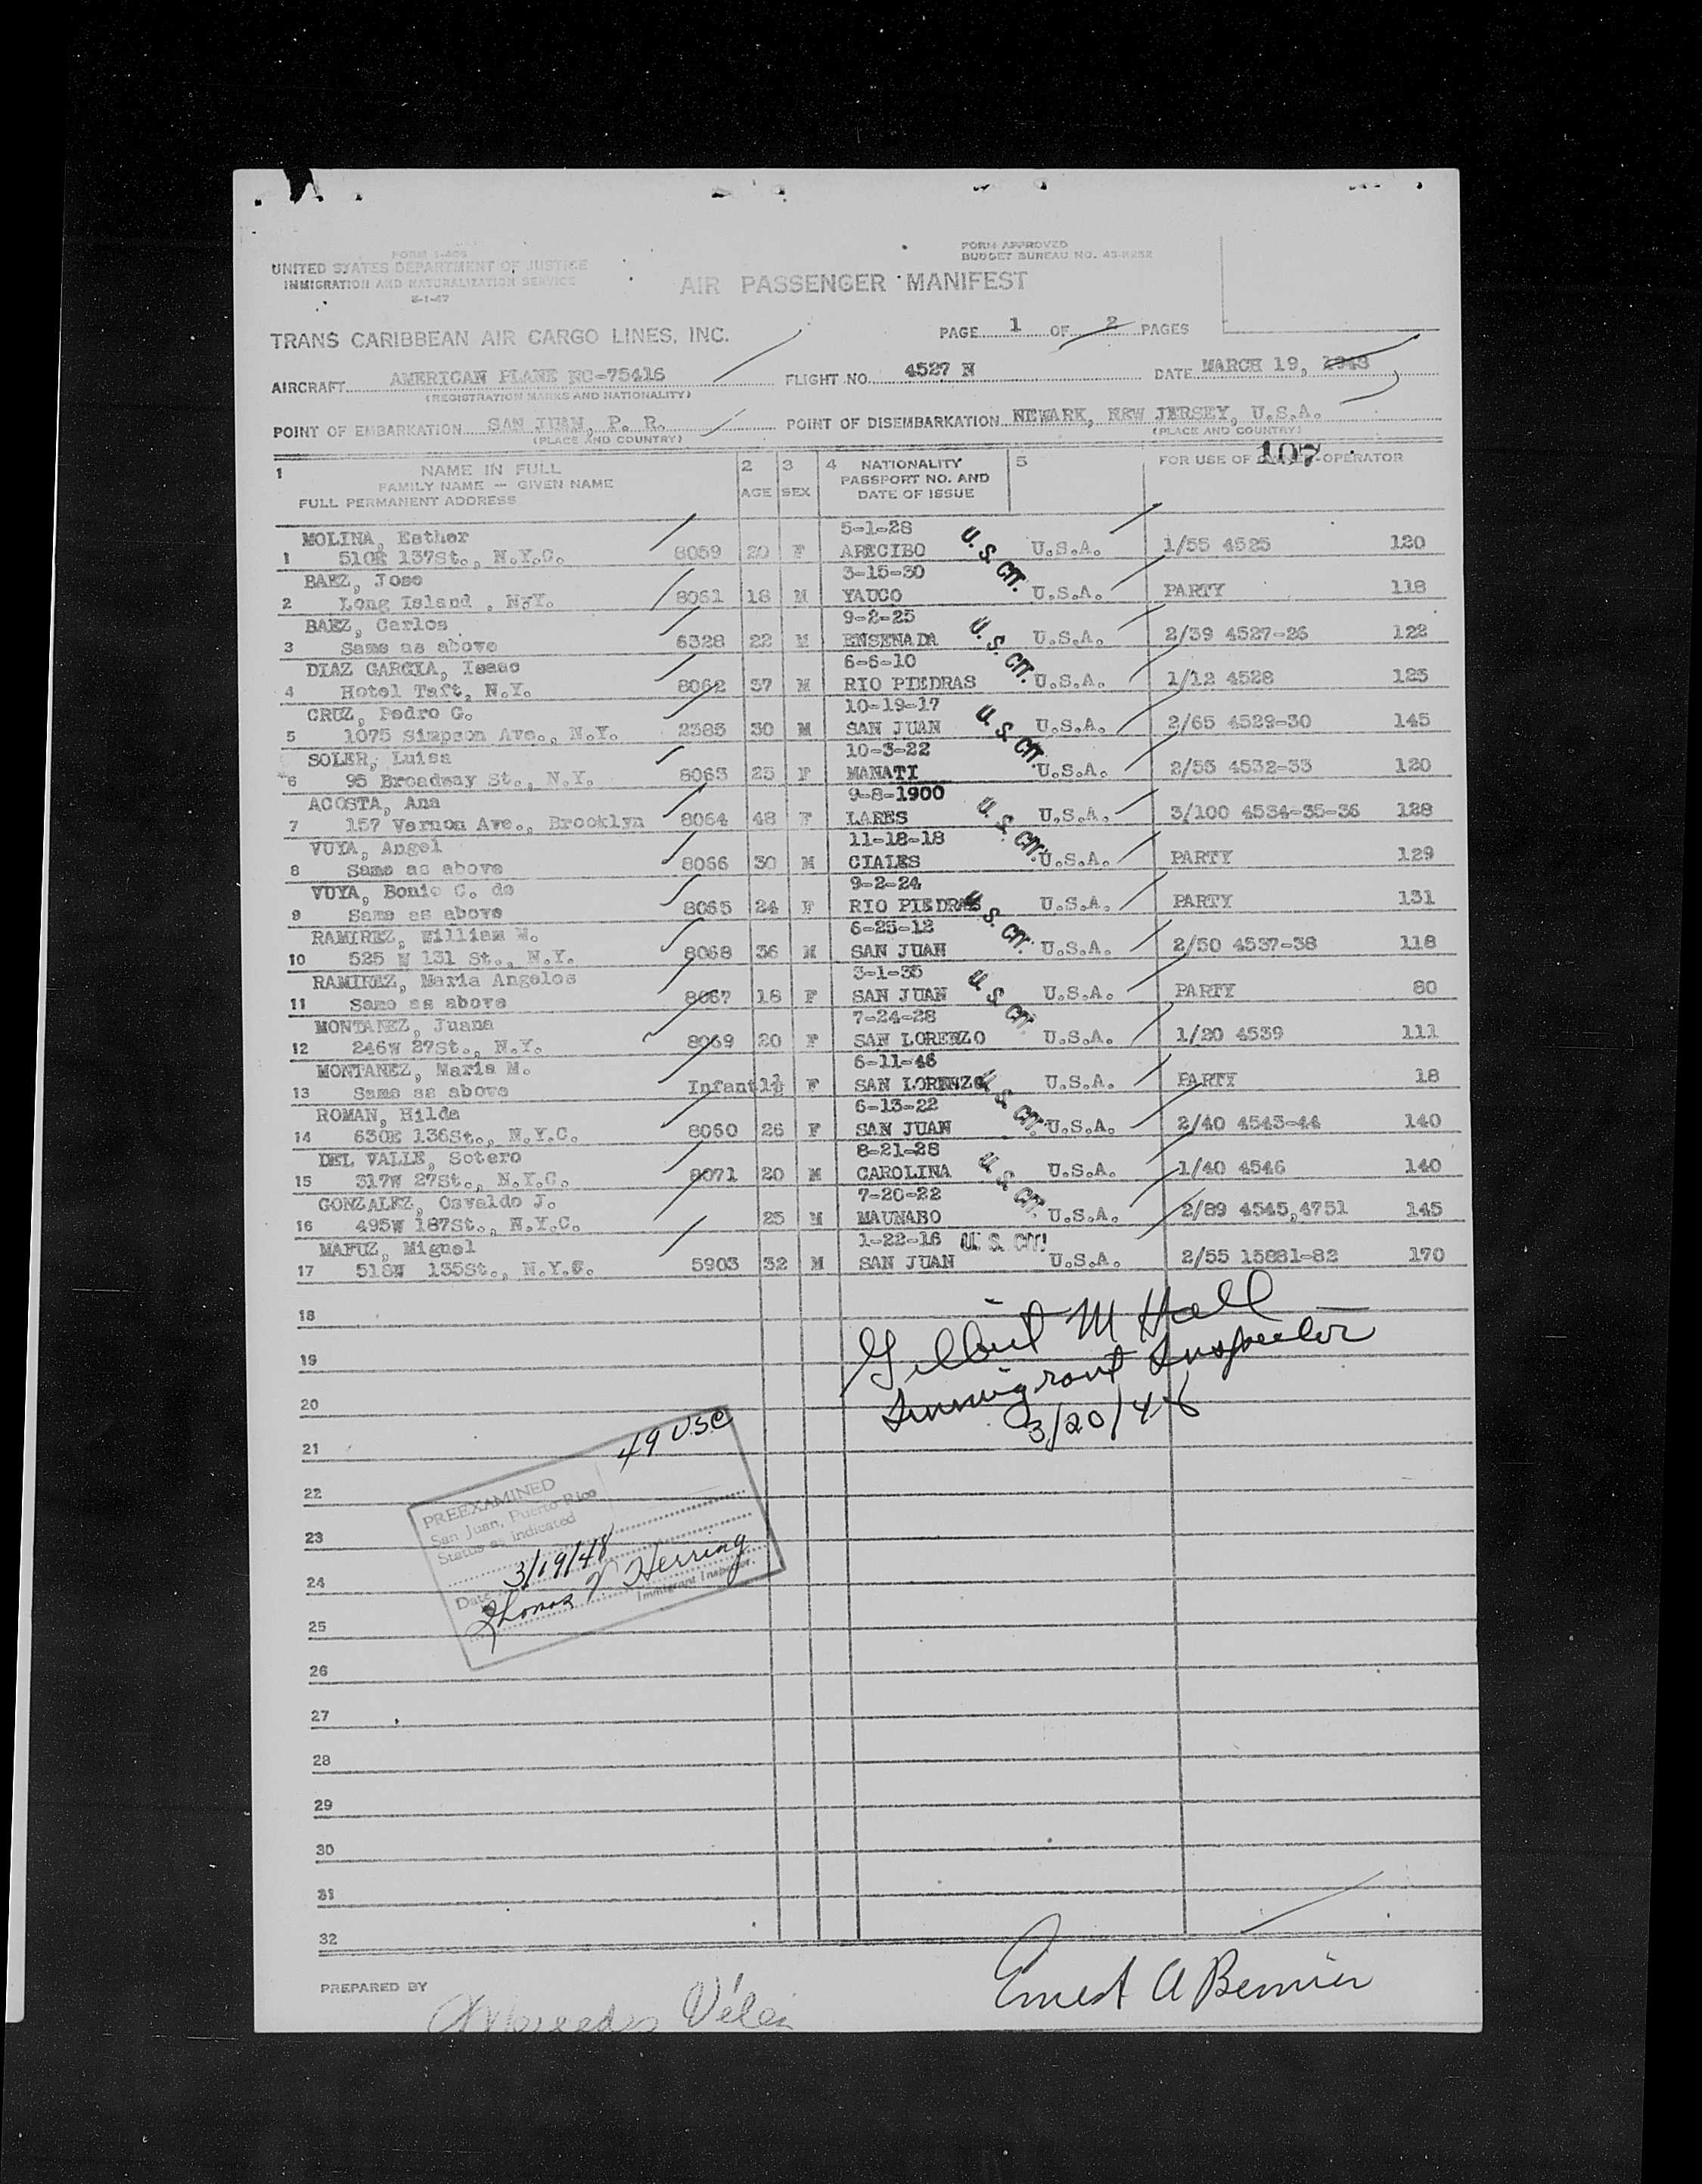 FORM I-466
UNITED STATES DEPARTMENT OF JUSTICE
IMMIGRATION AND NATURALIZATION SERVICE
5-1-47
FORM APPROVED
BUDGET BUREAU NO. 43-R252
AIR PASSENGER MANIFEST
TRANS CARIBBEAN AIR CARGO LINES, INC.
PAGE 1 OF 2 PAGES
AIRCRAFT AMERICAN PLANE NC-75416 FLIGHT NO. 4527 N DATE MARCH 19, 1948
(REGISTRATION MARKS AND NATIONALITY)
POINT OF EMBARKATION SAN JUAN, P. R. POINT OF DISEMBARKATION NEWARK, NEW JERSEY, U.S.A.
(PLACE AND COUNTRY) (PLACE AND COUNTRY)
107
1 NAME IN FULL 2 3 4 NATIONALITY 5 FOR USE OF OWNER-OPERATOR
FAMILY NAME — GIVEN NAME AGE SEX PASSPORT NO. AND
FULL PERMANENT ADDRESS DATE OF ISSUE
MOLINA, Esther 5-1-28
1 510E 137St., N.Y.C. 8059 20 F ARECIBO U. S. CIT. U.S.A. 1/55 4525 120
BAEZ, Jose 3-15-30
2 Long Island , N.Y. 8061 18 M YAUCO U.S.A. PARTY 118
BAEZ, Carlos 9-2-25
3 Same as above 6328 22 M ENSENADA U. S. CIT. U.S.A. 2/39 4527-26 122
DIAZ GARCIA, Isaac 6-6-10
4 Hotel Taft, N.Y. 8062 37 M RIO PIEDRAS U.S.A. 1/12 4528 125
CRUZ, Pedro G. 10-19-17
5 1075 Simpson Ave., N.Y. 2385 30 M SAN JUAN U. S. CIT. U.S.A. 2/65 4529-30 145
SOLER, Luisa 10-3-22
6 95 Broadway St., N.Y. 8063 25 F MANATI U.S.A. 2/55 4532-33 120
ACOSTA, Ana 9-8-1900
7 157 Vernon Ave., Brooklyn 8064 48 F LARES U. S. CIT. U.S.A. 3/100 4534-35-36 128
VUYA, Angel 11-18-18
8 Same as above 8066 30 M CIALES U.S.A. PARTY 129
VUYA, Bonie C. de 9-2-24
9 Same as above 8065 24 F RIO PIEDRAS U. S. CIT. U.S.A. PARTY 131
RAMIREZ, William W. 6-25-12
10 525 W 131 St., N.Y. 8068 36 M SAN JUAN U.S.A. 2/50 4537-38 118
RAMIREZ, Maria Angelos 3-1-35
11 Same as above 8067 18 F SAN JUAN U. S. CIT. U.S.A. PARTY 80
MONTANEZ, Juana 7-24-28
12 246W 27St., N.Y. 8069 20 F SAN LORENZO U.S.A. 1/20 4539 111
MONTANEZ, Maria M. 6-11-46
13 Same as above Infant 1½ F SAN LORENZO U. S. CIT. U.S.A. PARTY 18
ROMAN, Hilda 6-13-22
14 630E 136St., N.Y.C. 8060 26 F SAN JUAN U.S.A. 2/40 4543-44 140
DEL VALLE, Sotero 8-21-28
15 317W 27St., N.Y.C. 8071 20 M CAROLINA U. S. CIT. U.S.A. 1/40 4546 140
GONZALEZ, Osvaldo J. 7-20-22
16 495W 187St., N.Y.C. 25 M MAUNABO U.S.A. 2/89 4545,4751 145
MAFUZ, Miguel 1-22-16 U. S. CIT.
17 518W 135St., N.Y.C. 5903 32 M SAN JUAN U.S.A. 2/55 15881-82 170
18
Gilbert M Hall
19
Immigrant Inspector
20
3/20/48
21
49 USC
22
PREEXAMINED
San Juan, Puerto Rico
Status as indicated
23
24
Date 3/19/48
Thomas V Herring
Immigrant Inspector.
25
26
27
28
29
30
31
32
PREPARED BY Mercedes Vélez
Ernest A Bernier